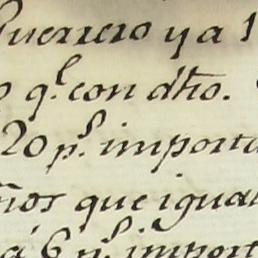 Guerrero y a 1
o q.l con dho.
20 p.s import
ños que igual
á 6 p.s import